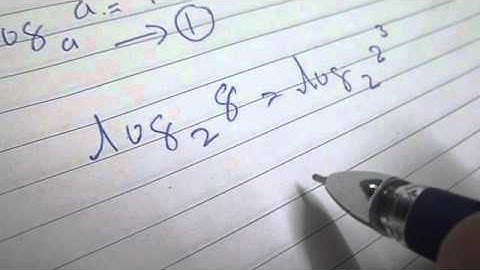 log_a a = → ①
log_2 8 = log_2 2^3